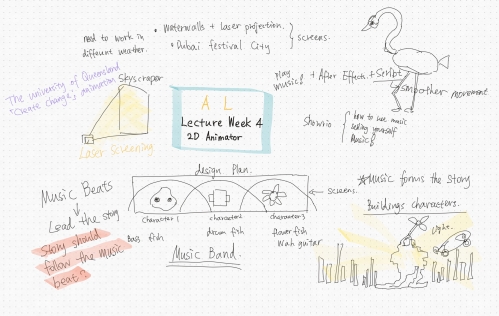 need to work in
different weather.
• Waterwalls + laser projection.
• Dubai festival City
} screens.
The university of Queensland
"Create change" animation
Skyscraper
Laser Screening
A L
Lecture Week 4
2D Animator
Play
music!
+ After Effects. + Script
→ smoother movement
Showrio
how to use music
selling yourself
Music!
Music Beats
↓
Lead the story
Story should
follow the music
beat?
design Plan.
← screens.
character 1
character 2
character 3
Bass fish
drum fish
flower fish
Wah guitar
Music Band.
☆Music forms the story
Buildings characters.
Light.